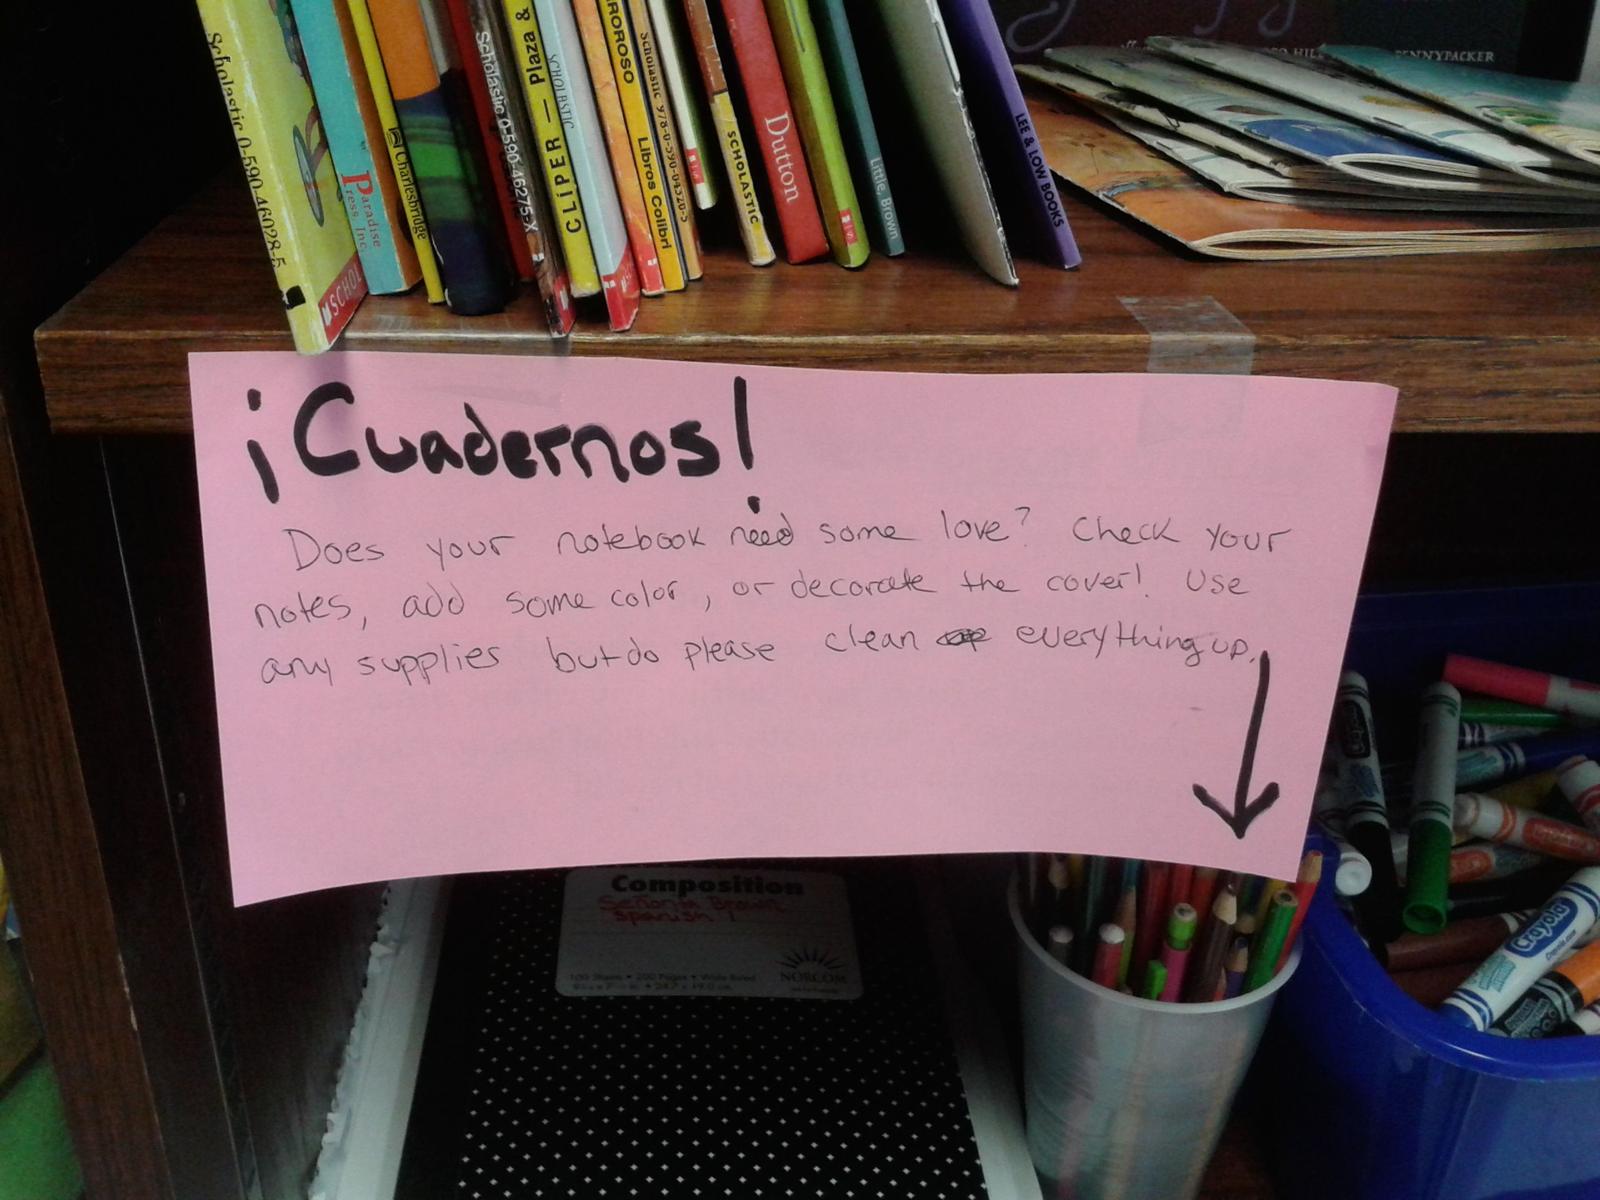 Scholastic 0-590-46028-5
SCHOL
Paradise
Press, Inc.
Charlesbridge
Scholastic 0-590-46275-X
CLÍPER — Plaza &
SCHOLASTIC
Libros Colibrí
Scholastic 978-0-590-04320-5
SCHOLASTIC
Dutton
Little, Brown
LEE & LOW BOOKS
PENNYPACKER
¡Cuadernos!
Does your notebook need some love? Check your
notes, add some color, or decorate the cover! Use
any supplies but do please clean everything up.
Composition
Señorita Brown
Spanish 1
100 Sheets • 200 Pages • Wide Ruled
NORCOM
Crayola